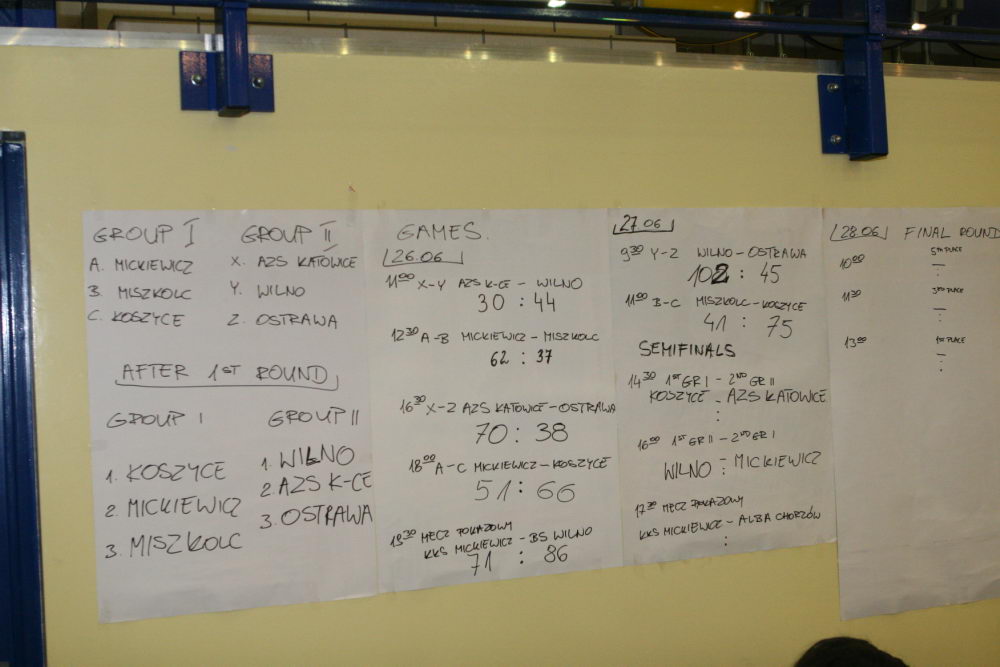 GROUP I GROUP II
A. MICKIEWICZ X. AZS KATOWICE
B. MISZKOLC Y. WILNO
C. KOSZYCE Z. OSTRAWA
AFTER 1ST ROUND
GROUP I GROUP II
1. KOSZYCE 1. WILNO
2. MICKIEWICZ 2. AZS K-CE
3. MISZKOLC 3. OSTRAWA
GAMES.
26.06
11:00 X-Y AZS K-CE - WILNO
30 : 44
12:30 A-B MICKIEWICZ - MISZKOLC
62 : 37
16:30 X-Z AZS KATOWICE - OSTRAWA
70 : 38
18:00 A-C MICKIEWICZ - KOSZYCE
51 : 66
19:30 MECZ POKAZOWY
KKS MICKIEWICZ - BS WILNO
71 : 86
27.06
9:30 Y-Z WILNO - OSTRAWA
102 : 45
11:00 B-C MISZKOLC - KOSZYCE
41 : 75
SEMIFINALS
14:30 1ST GR I - 2ND GR II
KOSZYCE - AZS KATOWICE
:
16:00 1ST GR II - 2ND GR I
WILNO : MICKIEWICZ
17:30 MECZ POKAZOWY
KKS MICKIEWICZ - ALBA CHORZÓW
:
28.06 FINAL ROUND
10:00 5TH PLACE
-
:
11:30 3RD PLACE
-
:
13:00 1ST PLACE
-
: